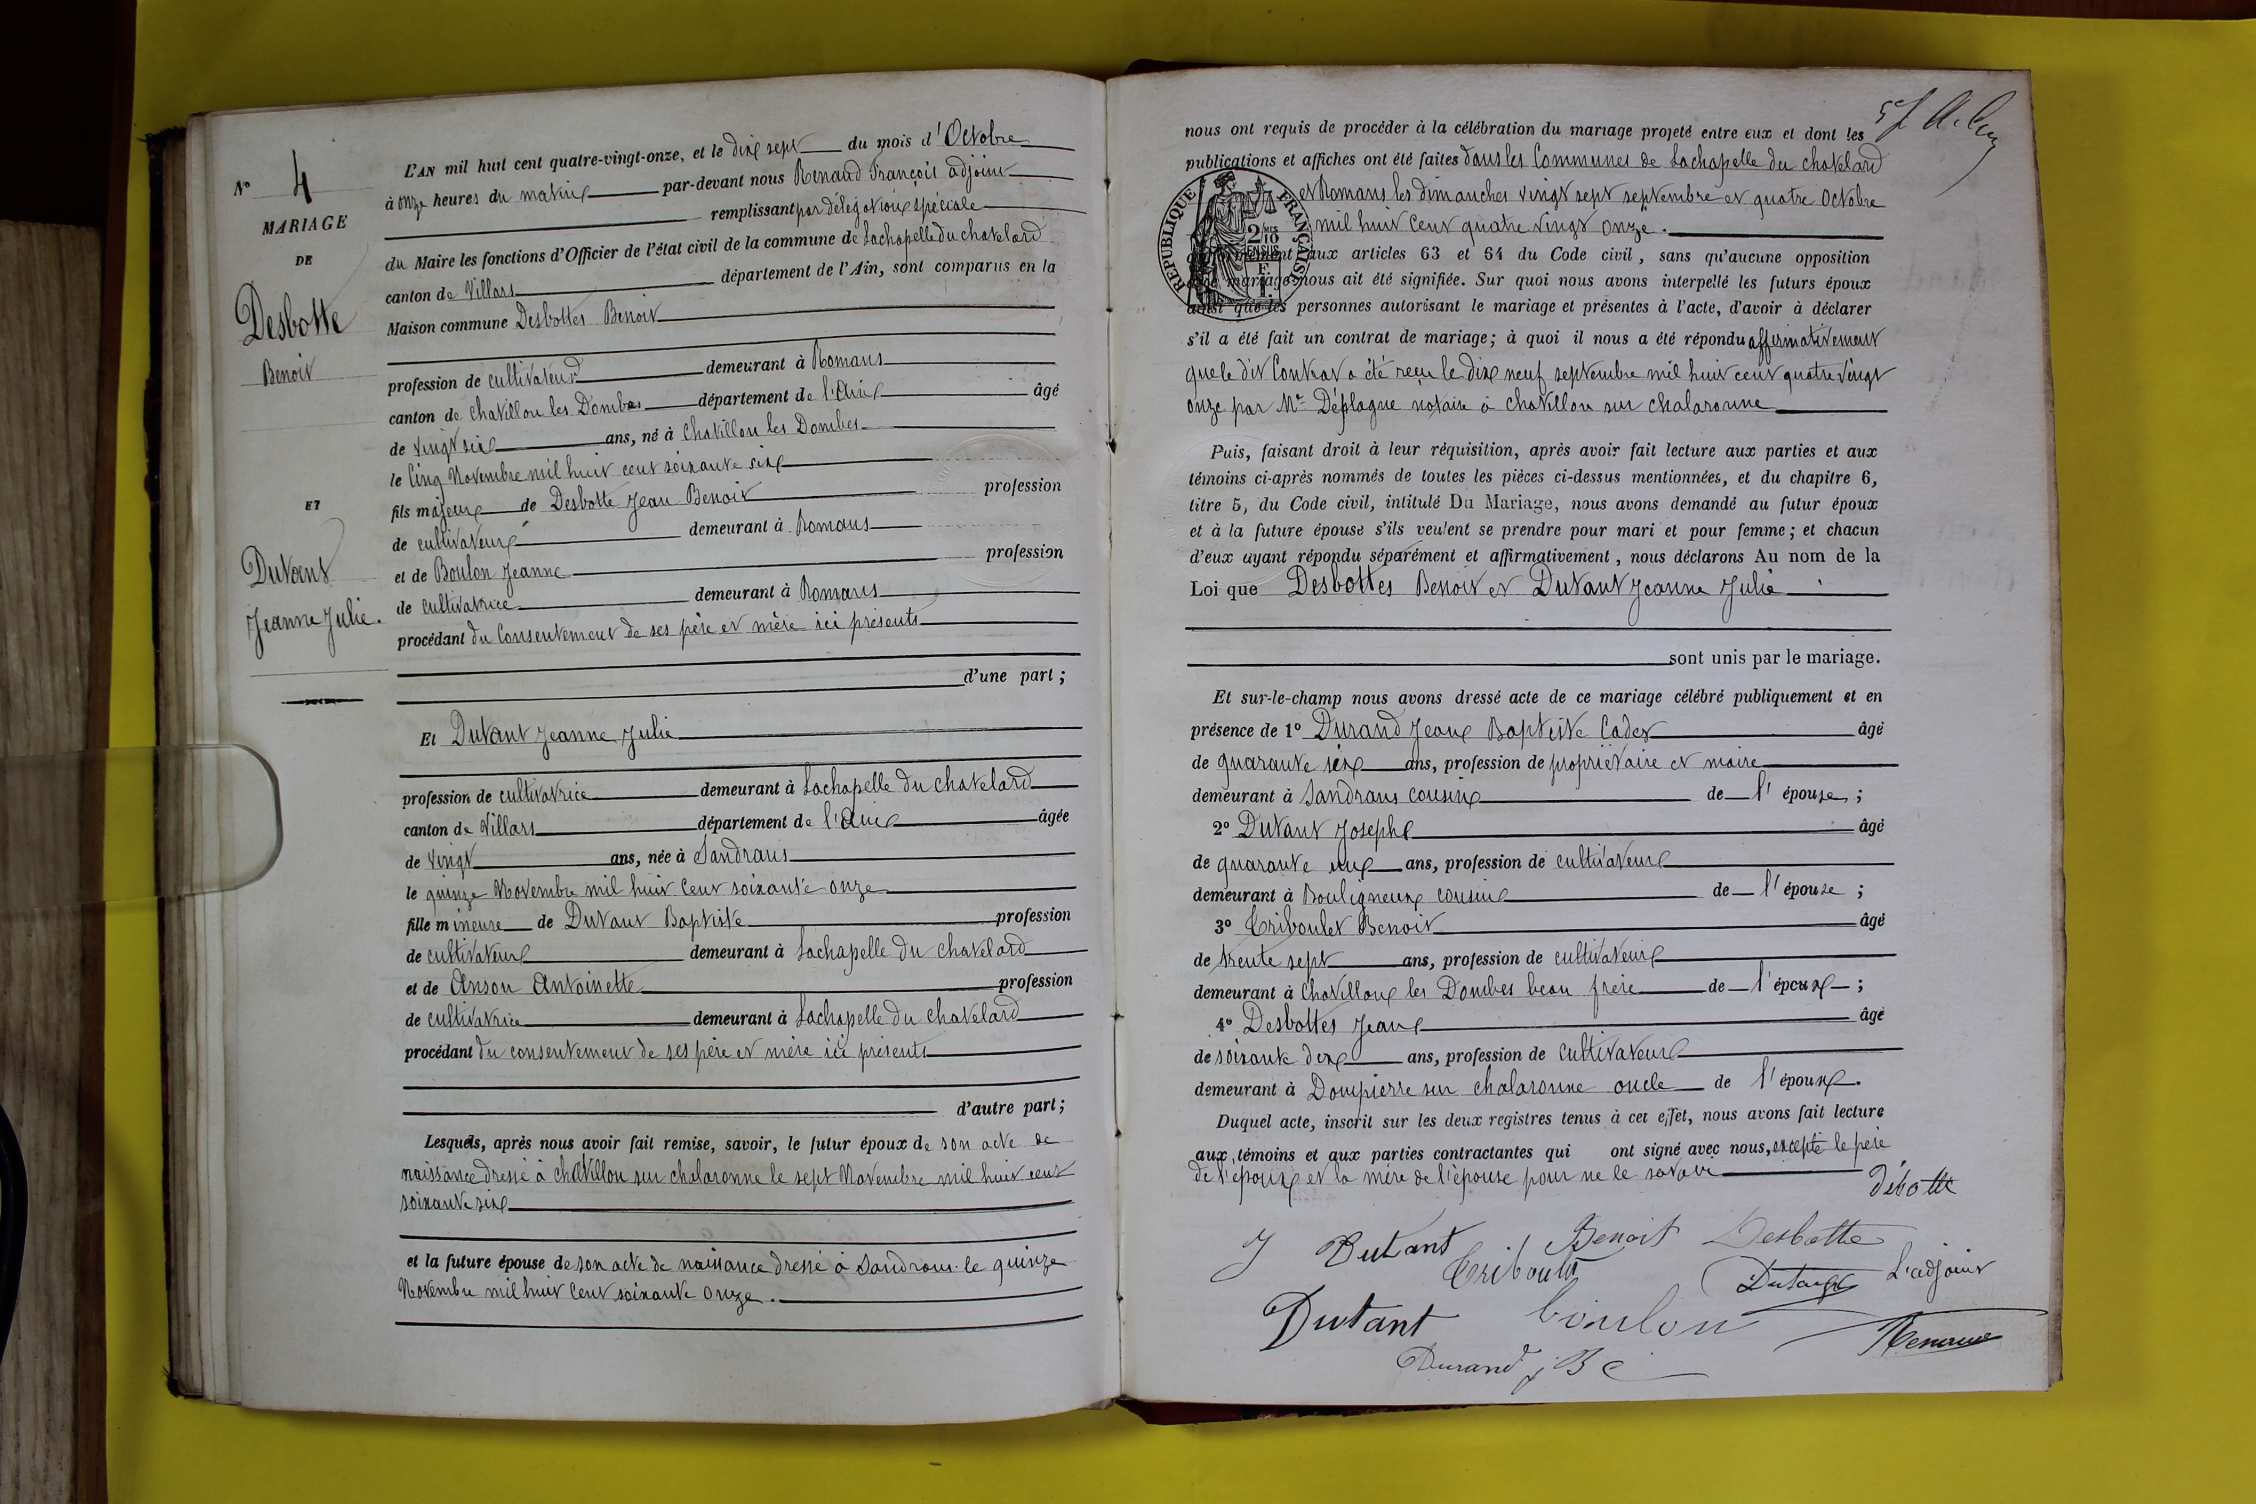 N° 4
MARIAGE
DE
Desbotte
Benoit
ET
Dutant
Jeanne Julie.
L'AN mil huit cent quatre-vingt-onze, et le dix sept du mois d'Octobre
à onze heures du matin par-devant nous Renaud François adjoint
remplissant par délégation spéciale
du Maire les fonctions d'Officier de l'état civil de la commune de Lachapelle du chatelard
canton de Villars département de l'Ain, sont comparus en la
Maison commune Desbottes Benoit
profession de cultivateur demeurant à Romans
canton de chatillon les Dombes département de l'Ain âgé
de vingt six ans, né à Chatillon les Dombes
le Cinq Novembre mil huit cent soixante six
fils majeur de Desbotte Jean Benoit profession
de cultivateur demeurant à Romans
et de Boulon Jeanne profession
de cultivatrice demeurant à Romans
procédant du Consentement de ses père et mère ici présents
d'une part ;
Et Dutant Jeanne Julie
profession de cultivatrice demeurant à Lachapelle du chatelard
canton de Villars département de l'Ain âgée
de vingt ans, née à Sandrans
le quinze Novembre mil huit cent soixante onze
fille mineure de Dutant Baptiste profession
de cultivateur demeurant à Lachapelle du chatelard
et de Anson Antoinette profession
de cultivatrice demeurant à Lachapelle du chatelard
procédant du consentement de ses père et mère ici présents
d'autre part ;
Lesquels, après nous avoir fait remise, savoir, le futur époux de son acte de
naissance dressé à chatillon sur chalaronne le sept Novembre mil huit cent
soixante six
et la future épouse de son acte de naissance dressé à Sandrans le quinze
Novembre mil huit cent soixante onze.
nous ont requis de procéder à la célébration du mariage projeté entre eux et dont les
publications et affiches ont été faites dans les Communes de Lachapelle du chatelard
et Romans les dimanches vingt sept septembre et quatre Octobre
mil huit cent quatre vingt onze.
RÉPUBLIQUE FRANÇAISE
2/10
EN SUS
aux articles 63 et 64 du Code civil, sans qu'aucune opposition
mariage nous ait été signifiée. Sur quoi nous avons interpellé les futurs époux
ainsi que les personnes autorisant le mariage et présentes à l'acte, d'avoir à déclarer
s'il a été fait un contrat de mariage ; à quoi il nous a été répondu affirmativement
que le dit Contrat a été reçu le dix neuf septembre mil huit cent quatre vingt
onze par Me Déplagne notaire à chatillon sur chalaronne
Puis, faisant droit à leur réquisition, après avoir fait lecture aux parties et aux
témoins ci-après nommés de toutes les pièces ci-dessus mentionnées, et du chapitre 6,
titre 5, du Code civil, intitulé Du Mariage, nous avons demandé au futur époux
et à la future épouse s'ils veulent se prendre pour mari et pour femme ; et chacun
d'eux ayant répondu séparément et affirmativement, nous déclarons Au nom de la
Loi que Desbottes Benoit et Dutant Jeanne Julie
sont unis par le mariage.
Et sur-le-champ nous avons dressé acte de ce mariage célébré publiquement et en
présence de 1° Durand Jean Baptiste Cadet âgé
de quarante six ans, profession de propriétaire et maire
demeurant à Sandrans cousin de l'épouse ;
2° Dutant Joseph âgé
de quarante un ans, profession de cultivateur
demeurant à Bouligneux cousin de l'épouse ;
3° Triboulet Benoit âgé
de trente sept ans, profession de cultivateur
demeurant à Chatillon les Dombes beau frère de l'époux ;
4° Desbottes Jean âgé
de soixante dix ans, profession de cultivateur
demeurant à Dompierre sur chalaronne oncle de l'époux.
Duquel acte, inscrit sur les deux registres tenus à cet effet, nous avons fait lecture
aux témoins et aux parties contractantes qui ont signé avec nous, excepté le père
de l'époux et la mère de l'épouse pour ne le savoir
Débotte
J Dutant Benoit Desbotte
Triboulet Dutant L'adjoint
Dutant boulon Renaud
Durand J B C